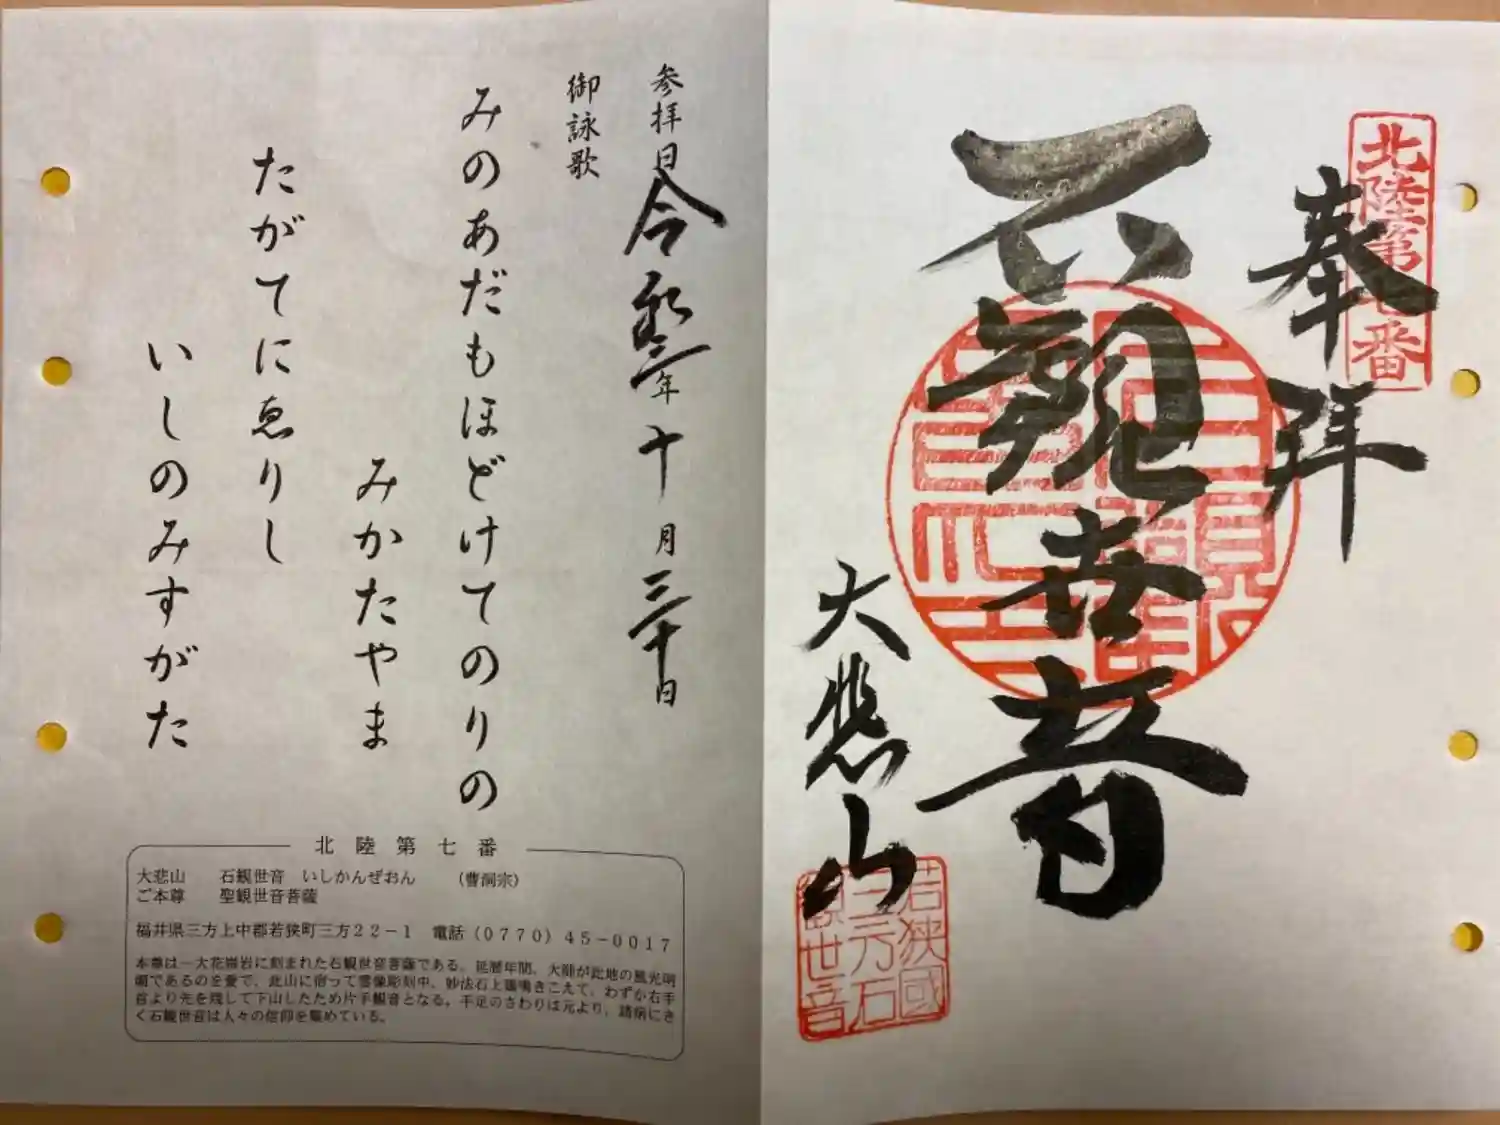 北陸第七番
奉拝
石観世音
大悲山
若狭國
三方石
観世音
参拝日 令和三年十月三十日
御詠歌
みのあだもほどけてのりの
みかたやま
たがてにゑりし
いしのみすがた
北陸第七番
大悲山 石観世音 いしかんぜおん (曹洞宗)
ご本尊 聖観世音菩薩
福井県三方上中郡若狭町三方22-1 電話(0770)45-0017
本尊は一大花崗岩に刻まれた石観世音菩薩である。延暦年間、大師が此地の風光明
媚であるのを愛で、此山に宿って尊像彫刻中、妙法石上鶏鳴きこえて、わずか右手
首より先を残して下山したため片手観音となる。手足のさわりは元より、諸病にき
く石観世音は人々の信仰を集めている。